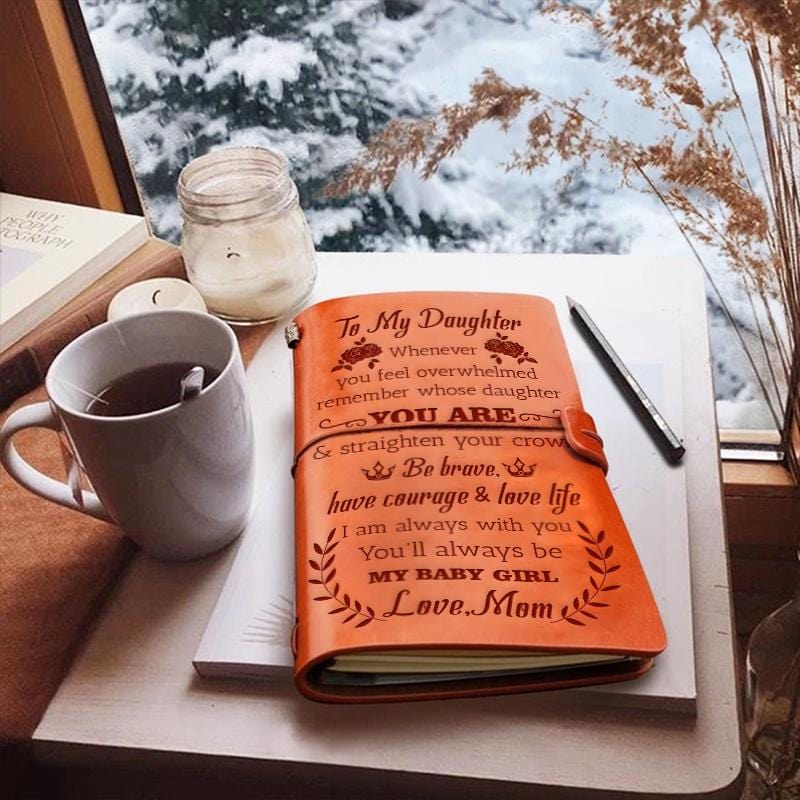 WHY
PEOPLE
PHOTOGRAPH
To My Daughter
Whenever
you feel overwhelmed
remember whose daughter
YOU ARE
& straighten your crow
Be brave,
have courage & love life
I am always with you
You'll always be
MY BABY GIRL
Love,Mom